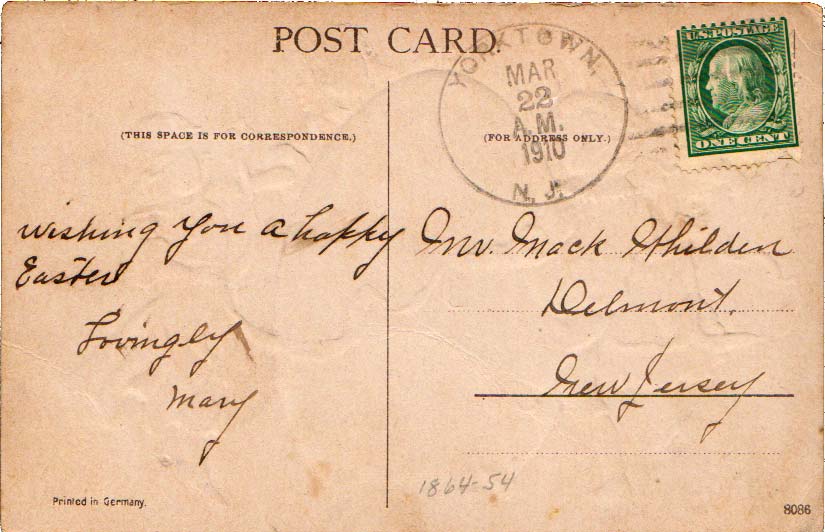 POST CARD.
YORKTOWN,
MAR
22
A.M.
1910
N. J.
U.S. POSTAGE
ONE CENT
(THIS SPACE IS FOR CORRESPONDENCE.)
(FOR ADDRESS ONLY.)
wishing you a happy
Easter
Lovingly
Mary
Mr. Mack
Delmont.
New Jersey
1864-54
Printed in Germany.
8086